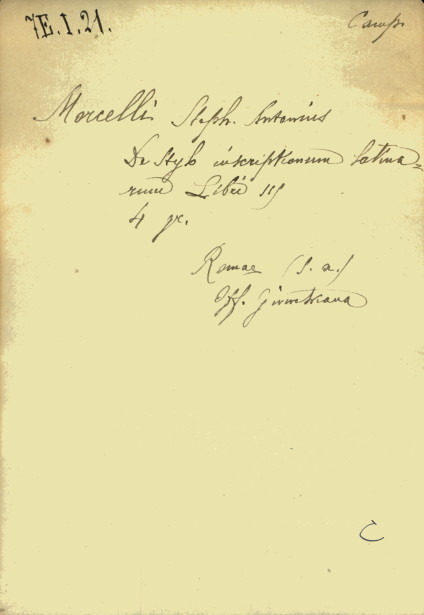 7E.I.21.
Camp.
Morcelli Steph. Antonius
De Stylo inscriptionum latina=
rum Libri III
4 gr.
Romae (s. a.)
Off. Giunchiana
C